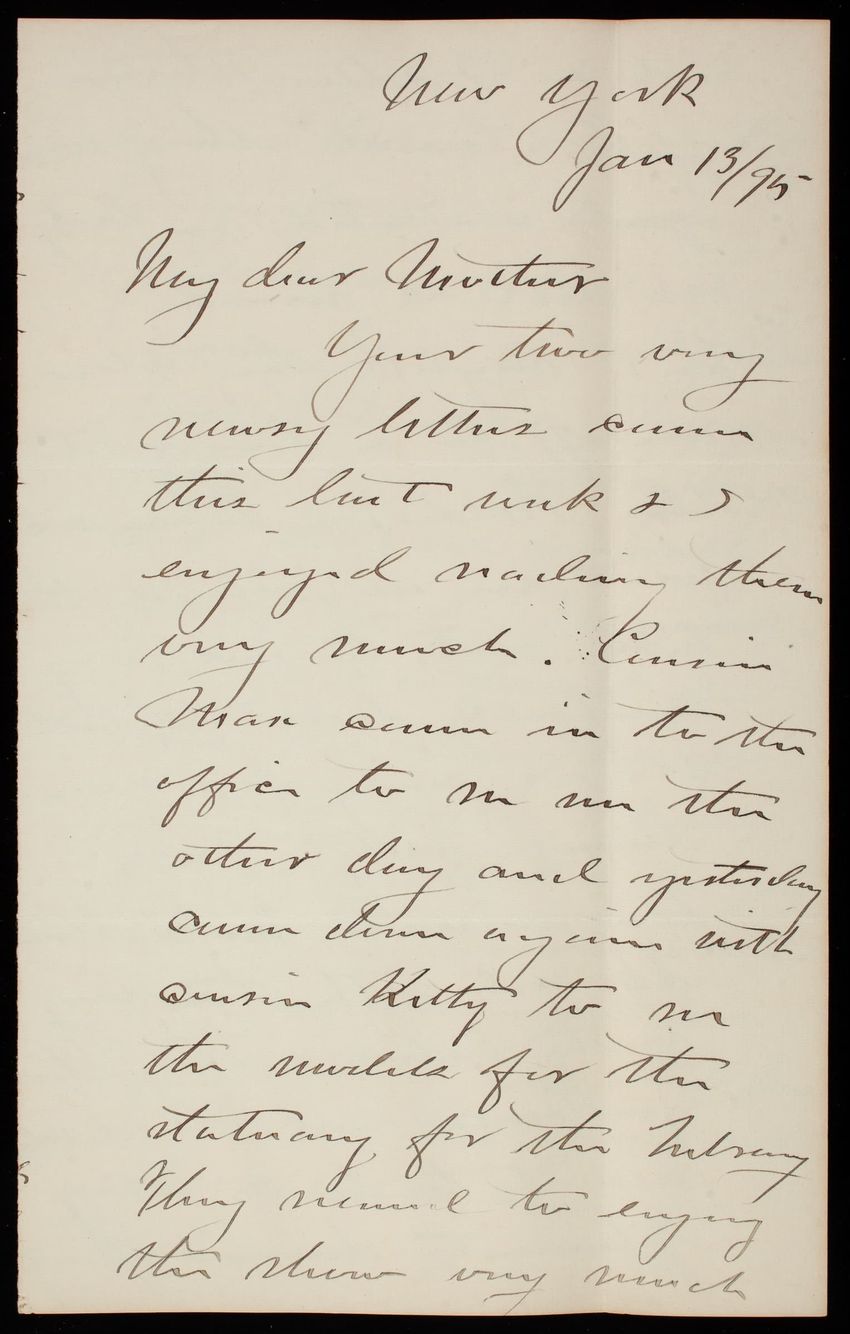 New York
Jan 13/95
My dear Mother
Your two very
newsy letters came
this last week & I
enjoyed reading them
very much. Cousin
Mary came in to the
office to see me the
other day and yesterday
came down again with
cousin Kitty to see
the models for the
statuary for the Library
They seemed to enjoy
the show very much